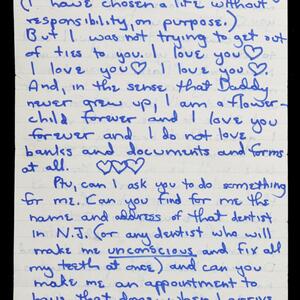 (I have chosen a life without
responsibility, on purpose.)
But I was not trying to get out
of ties to you. I love you♡
I love you♡ I love you♡
And, in the sense that Daddy
never grew up, I am a flower-
child forever and I love you
forever and I do not love
banks and documents and forms
at all. ♡♡♡
Ptr, can I ask you to do something
for me. Can you find for me the
name and address of that dentist
in N.J. (or any dentist who will
make me unconscious and fix all
my teeth at once) and can you
make me an appointment to
have that done when I arrive